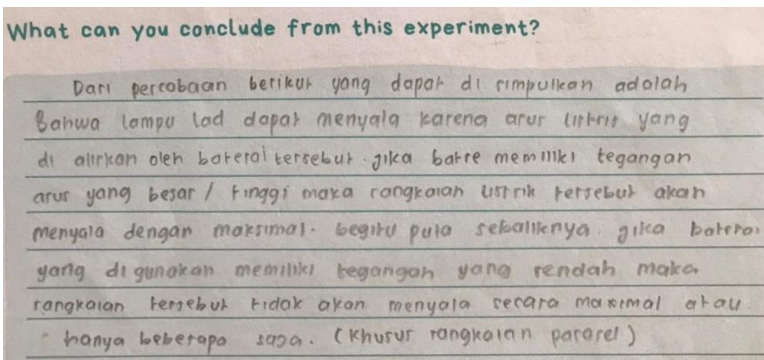 What can you conclude from this experiment?
Dari percobaan berikut yang dapat di simpulkan adalah
Bahwa lampu lad dapat menyala karena arus listris yang
di alirkan oleh baterai tersebut. jika batre memiliki tegangan
arus yang besar / tinggi maka rangkaian listrik tersebut akan
menyala dengan maksimal. begitu pula sebaliknya. jika baterai
yang di gunakan memiliki tegangan yang rendah maka
rangkaian tersebut tidak akan menyala secara maximal atau
hanya beberapa saja. (khusus rangkaian pararel)